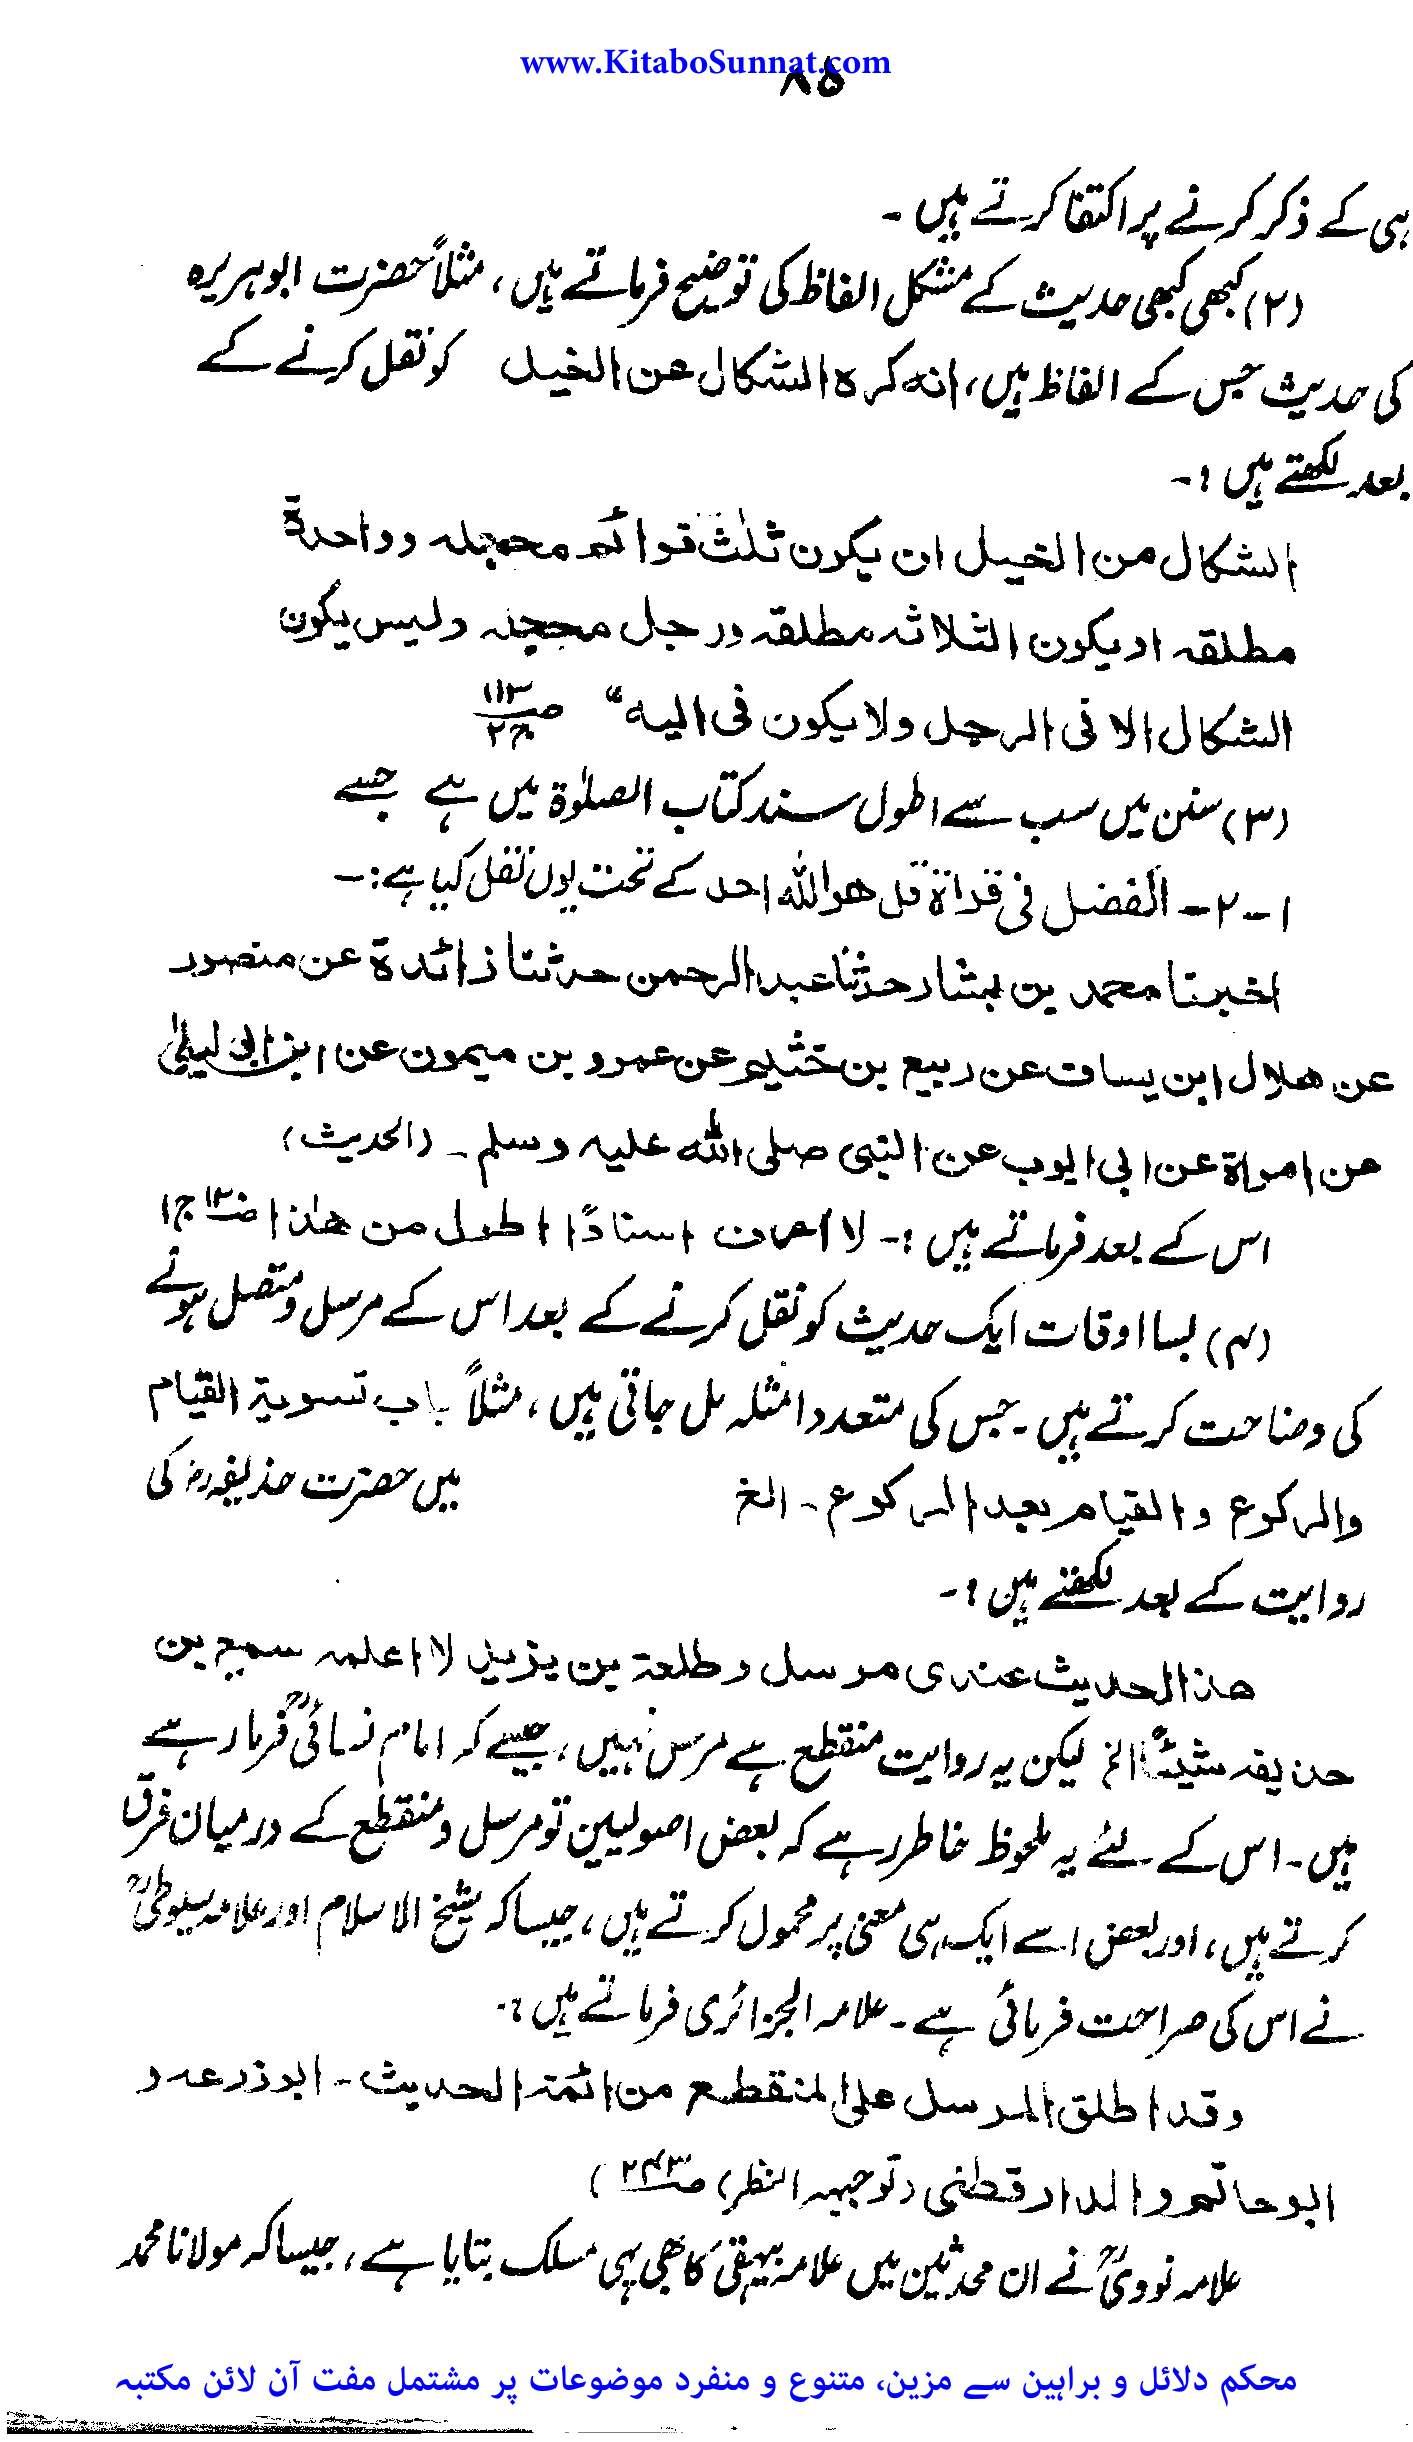 www.KitaboSunnat.com
۸۵
ہی کے ذکر کرنے پر اکتفا کرتے ہیں ۔
(۲) کبھی کبھی حدیث کے مشکل الفاظ کی توضیح فرماتے ہیں ، مثلاً حضرت ابوہریرہ
کی حدیث جس کے الفاظ ہیں، انه كره الشكال عن الخيل کو نقل کرنے کے
بعد لکھتے ہیں :۔
الشكال من الخيل ان يكون ثلٰث قوائم محجله وواحدة
مطلقه او يكون الثلاثه مطلقه ورجل محجله وليس يكون
الشكال الا فى الرجل ولا يكون فى اليه " ص۱۱۳ ج۲
(۳) سنن میں سب سے اطول سند کتاب الصلوٰۃ میں ہے جسے
۱ـ ۲ـ الفضل فى قراة قل هو الله احد کے تحت یوں نقل کیا ہے :۔
اخبرنا محمد بن بشار حدثنا عبد الرحمن حدثنا زائدة عن منصور
عن هلال ابن يساف عن ربيع بن خثيم عن عمرو بن ميمون عن ابن ابى ليلىٰ
عن امراة عن ابى ايوب عن النبى صلى الله عليه وسلم ۔ (الحدیث)
اس کے بعد فرماتے ہیں :۔ لا اعرف اسنادًا اطول من هٰذا ص۱۲۰ ج۱
(۴) بسا اوقات ایک حدیث کو نقل کرنے کے بعد اس کے مرسل و متصل ہونے
کی وضاحت کرتے ہیں ۔ جس کی متعدد امثلہ مل جاتی ہیں ، مثلاً باب تسوية القيام
والركوع والقيام بعد الركوع ۔ الخ میں حضرت حذیفہؓ کی
روایت کے بعد لکھتے ہیں :۔
هذا الحديث عندى مرسل وطلحة بن يزيد لا اعلمه سمع من
حذيفه شيئًا الخ لیکن یہ روایت منقطع ہے مرسل نہیں ، جیسے کہ امام نسائیؒ فرما رہے
ہیں ۔ اس کے لئے یہ ملحوظ خاطر رہے کہ بعض اصولیین تو مرسل و منقطع کے درمیان فرق
کرتے ہیں ، اور بعض اسے ایک ہی معنی پر محمول کرتے ہیں ، جیسا کہ شیخ الاسلام اور علامہ سیوطیؒ
نے اس کی صراحت فرمائی ہے ۔ علامہ الجزائری فرماتے ہیں :۔
وقد اطلق المرسل على المنقطع من ائمة الحديث ۔ ابوزرعه و
ابوحاتم والدارقطنى (توجيهه النظر ص۲۴۳)
علامہ نوویؒ نے ان محدثین میں علامہ بیہقیؒ کا بھی یہی مسلک بتایا ہے ، جیسا کہ مولانا محمد
محکم دلائل و براہین سے مزین، متنوع و منفرد موضوعات پر مشتمل مفت آن لائن مکتبہ